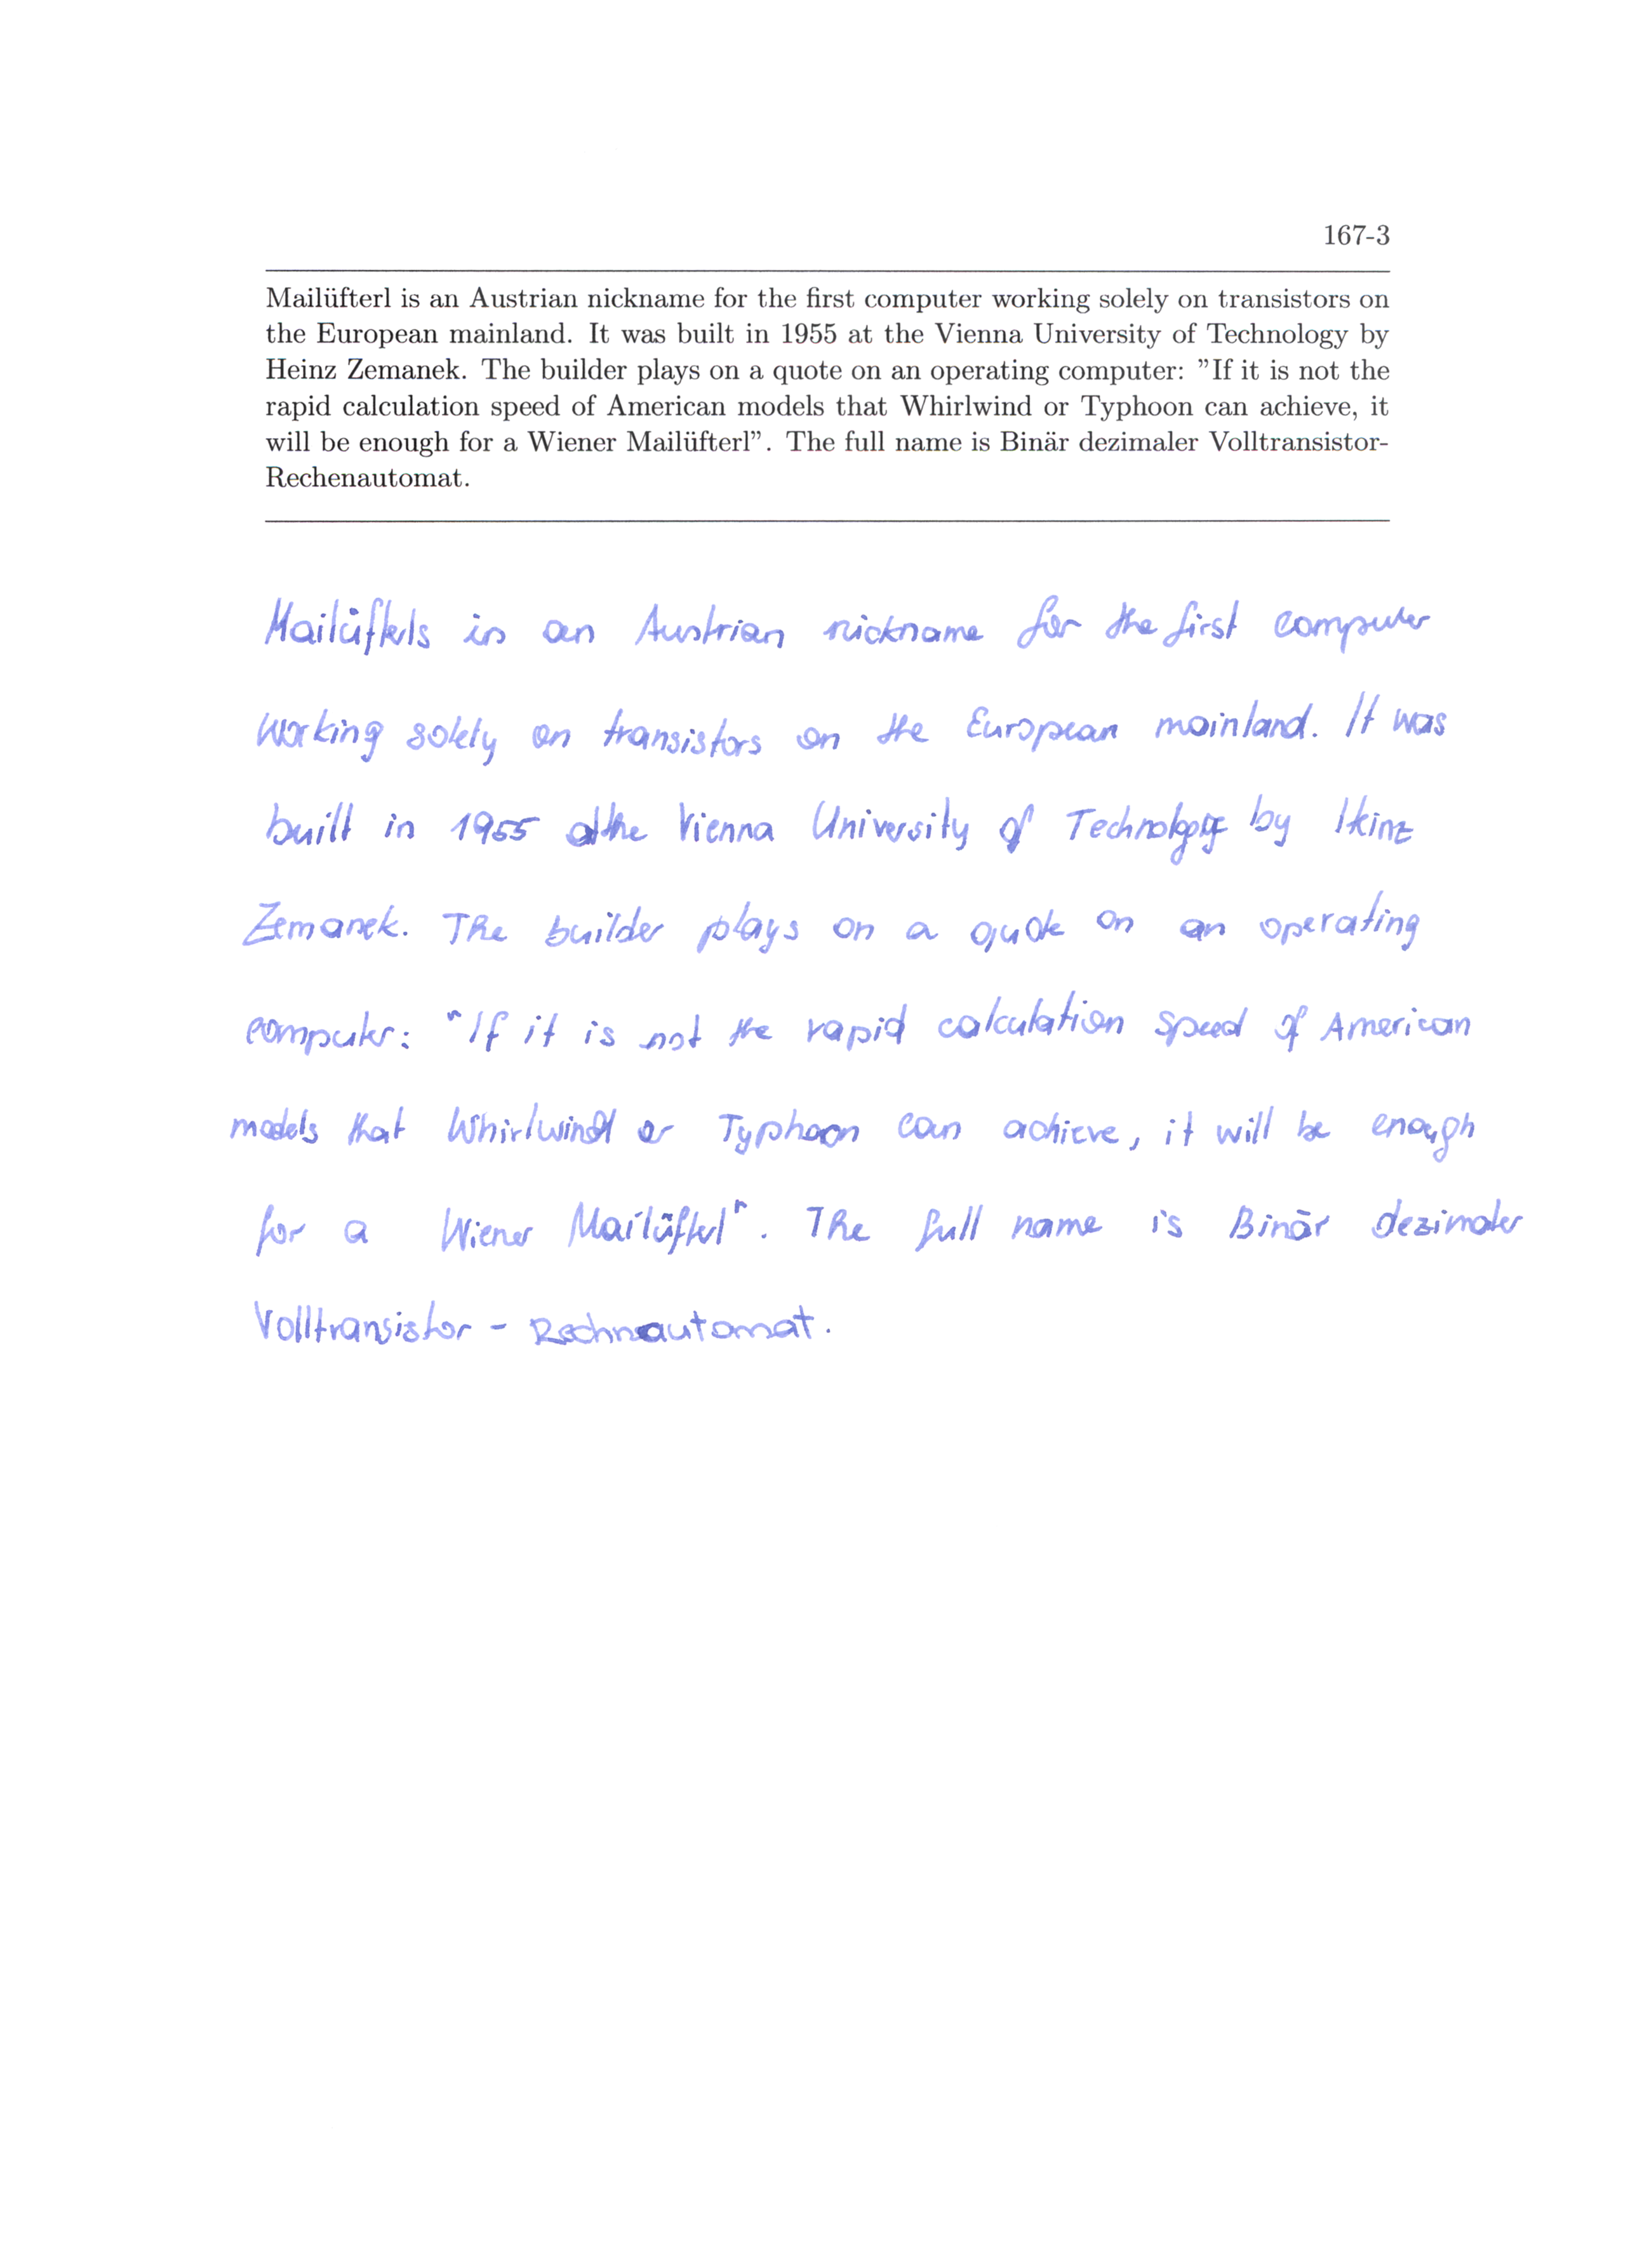 167-3
Mailüfterl is an Austrian nickname for the first computer working solely on transistors on
the European mainland. It was built in 1955 at the Vienna University of Technology by
Heinz Zemanek. The builder plays on a quote on an operating computer: ”If it is not the
rapid calculation speed of American models that Whirlwind or Typhoon can achieve, it
will be enough for a Wiener Mailüfterl”. The full name is Binär dezimaler Volltransistor-
Rechenautomat.
Mailüfterls is an Austrian nickname for the first computer
working solely on transistors on the European mainland. It was
built in 1955 at the Vienna University of Technology by Heinz
Zemanek. The builder plays on a quote on an operating
computer: "If it is not the rapid calculation speed of American
models that Whirlwind or Typhoon can achieve, it will be enough
for a Wiener Mailüfterl". The full name is Binär dezimaler
Volltransistor - Rechnautomat.